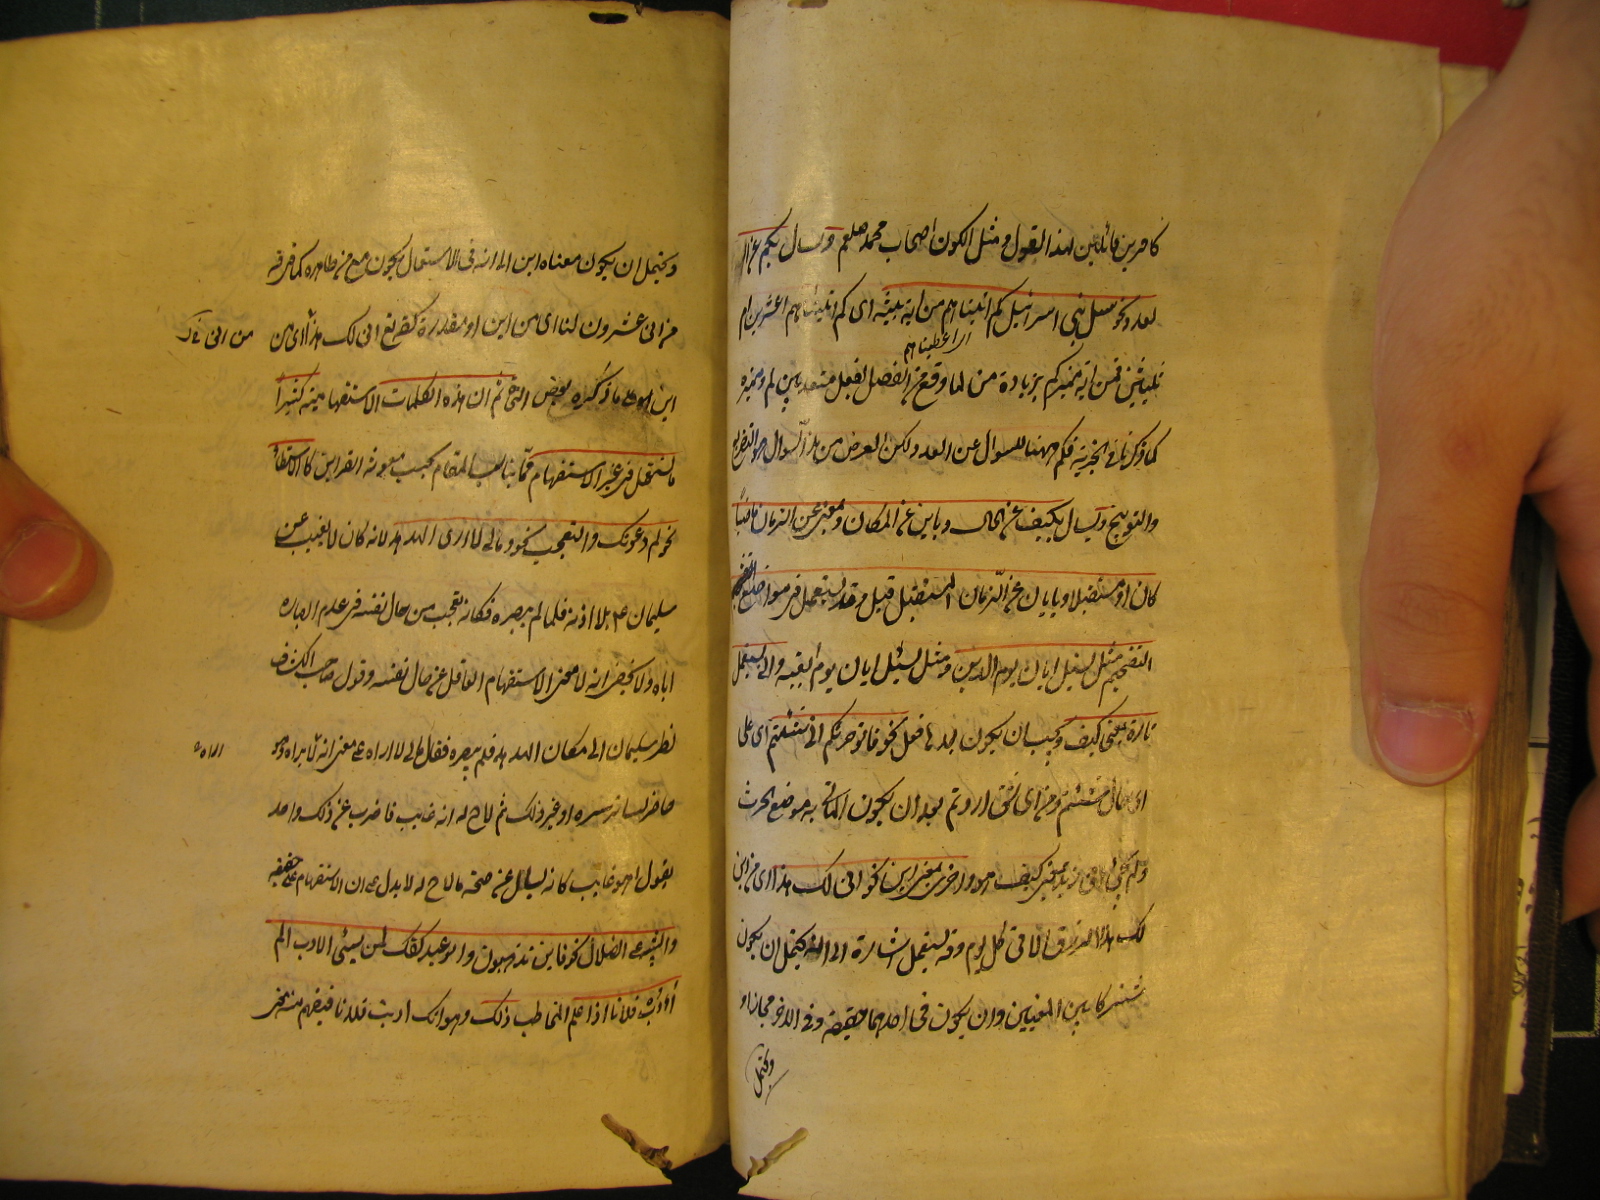 كافرين قائلين لهذا القول ومثل الكون اصحاب محمد صلعم ويسأل بكم عن
العدد نحو سل بني اسرائيل كم اتيناهم من اية بينة اى كم اية اتيناهم اعشرين ام
اى اعطيناهم
ثلثين فمن اية مميز كم بزيادة من لما وقع من الفصل بفعل متعد بين كم ومميزه
كما ذكرنا في الخبرية فكم ههنا للسؤال عن العدد ولكن الغرض من هذا السؤال هو التقريع
والتوبيخ ويسأل بكيف عن الحال وباين عن المكان وبمتى عن الزمان ماضيا
كان او مستقبلا وبايان عن الزمان المستقبل قيل وقد يستعمل في مواضع
التفخيم مثل يسئل ايان يوم الدين ومثل يسئل ايان يوم القيمة وانى يستعمل
تارة بمعنى كيف ويجب ان يكون بعدها فعل نحو فاتوا حرثكم انى شئتم اى على
اى حال شئتم ومن اى شق اردتم بعد ان يكون الماتى به موضع الحرث
ولم يجئ انى زيد بمعنى كيف هو واخرى بمعنى من اين نحو انى لك هذا اى من اين
لك هذا الرزق الاتى كل يوم وقوله يستعمل اشارة الى انه يحتمل ان يكون
مشتركا بين المعنيين وان يكون في احدهما حقيقة وفي الاخر مجازا و
ويحتمل
ويحتمل ان يكون معناه اين الا انه في الاستعمال يكون مع من ظاهرة كما في قوله
من انى عشرون لنا اى من اين او مقدرة كقوله تع انى لك هذا اى من
اين هو على ما ذكره بعض النحاة ثم ان هذه الكلمات الاستفهامية كثيرا
ما تستعمل في غير الاستفهام مما يناسب المقام بحسب معونة القرائن كالاستبطاء
نحو كم دعوتك والتعجب نحو مالى لا ارى الهدهد لانه كان لا يغيب عن
سليمان ع م بلا اذنه فلما لم يبصره فكانه تعجب من حال نفسه في عدم ابصاره
اياه ولا يخفى انه لا معنى لاستفهام العاقل عن حال نفسه وقول صاحب الكشاف
نظر سليمان الى مكان الهدهد فلم يبصره فقال مالى لا اراه على معنى انه لا يراه وهو
حاضر لساتر ستره او غير ذلك ثم لاح له انه غايب فاضرب عن ذلك واخذ
يقول اهو غايب كانه يسأل عن صحة ما لاح له لا يدل على ان الاستفهام على حقيقته
والتنبيه على الضلال نحو فاين تذهبون والوعيد كقولك لمن يسيئ الادب الم
أؤدب فلانا اذا علم المخاطب ذلك وهو انك ادبت فلانا فيفهم منه معنى